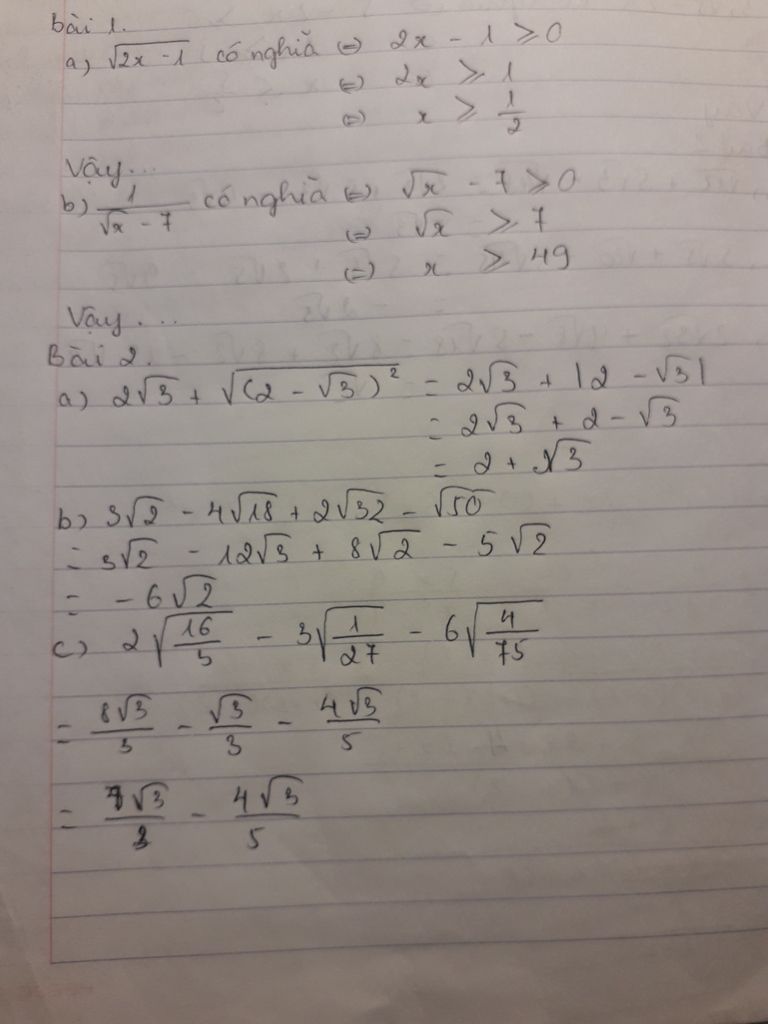 Bài 1.
a) √(2x - 1) có nghĩa ⇔ 2x - 1 ≥ 0
⇔ 2x ≥ 1
⇔ x ≥ 1/2
Vậy...
b) 1/(√x - 7) có nghĩa ⇔ √x - 7 ≥ 0
⇔ √x ≥ 7
⇔ x ≥ 49
Vậy...
Bài 2.
a) 2√3 + √((2 - √3)²) = 2√3 + |2 - √3|
= 2√3 + 2 - √3
= 2 + √3
b) 3√2 - 4√18 + 2√32 - √50
= 3√2 - 12√3 + 8√2 - 5√2
= - 6√2
c) 2√(16/3) - 3√(1/27) - 6√(4/75)
= 8√3/3 - √3/3 - 4√3/5
= 7√3/3 - 4√3/5